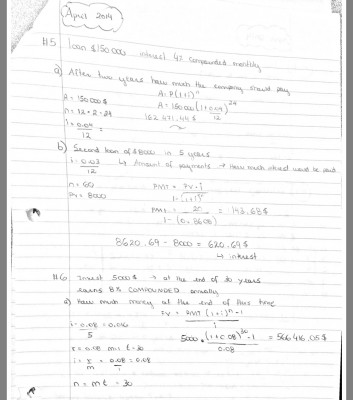 April 2014
#5 loan $150 000 interest 4% compounded monthly
a) After two years how much the company should pay
A = P(1+i)^n
2 = 150 000$
A = 150 000 (1+0.04/12)^24
n = 12 × 2 = 24
162 471.44$
i = 0.04/12 =
b) Second loan of $8000 in 5 years
i = 0.03/12 ↳ Amount of payments → How much interest would be paid
n = 60
PV = 8000
PMT = PV·i / 1-(1+i)^n
PMT = 20 / 1-(0.8608) = 143.68$
8620.69 - 8000 = 620.69$
↳ interest
#6 Invest 5000$ → at the end of 30 years
earns 8% COMPOUNDED annually
a) How much money at the end of this time
FV = PMT (1+i)^n - 1 / i
i = 0.08/5 = 0.016
5000 · (1+0.08)^30 - 1 / 0.08 = 566 416.05$
r = 0.08 m=1 t=30
i = r/m = 0.08/1 = 0.08
n = mt = 30